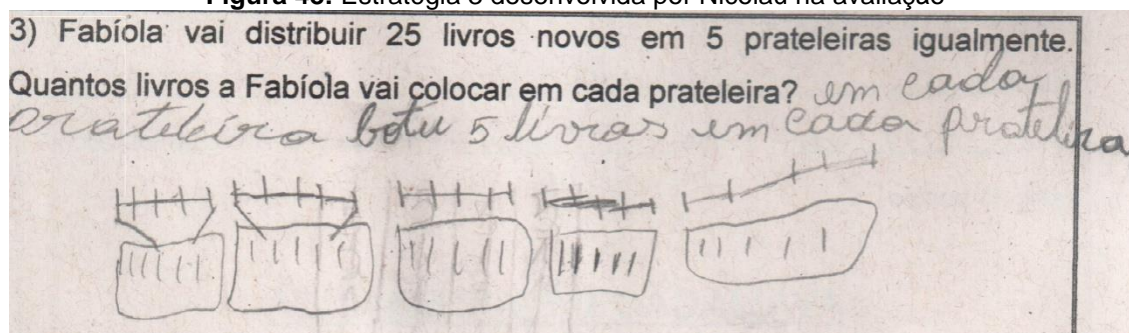 Figura 48: Estratégia e desenvolvida por Nicolau na avaliação
3) Fabíola vai distribuir 25 livros novos em 5 prateleiras igualmente.
Quantos livros a Fabíola vai colocar em cada prateleira? em cada
prateleira botu 5 livros em cada prateleira